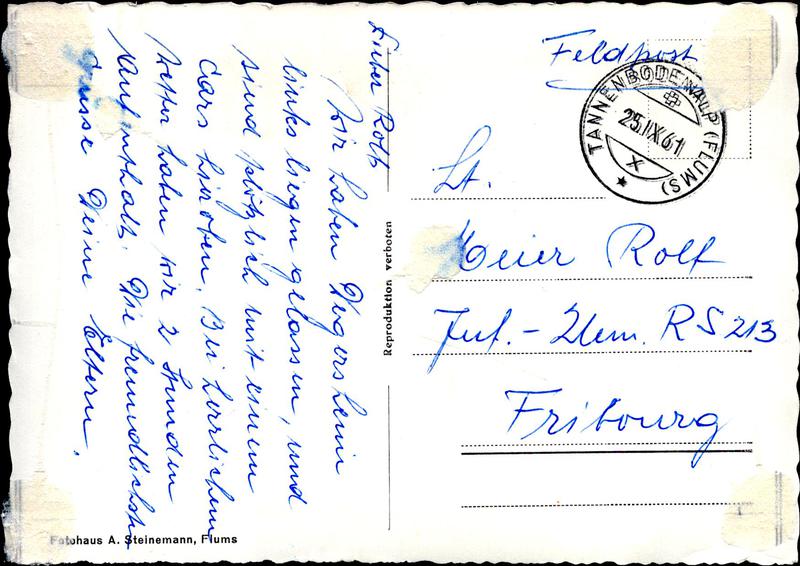 Lieber Rolf
Wir haben Degersheim
links liegen gelassen, und
sind plötzlich mit einem
Cars hier oben. Bei herrlichem
Wetter haben wir 2 Stunden
Aufenthalt. Die freundlichsten
Grüsse Deine Eltern.
Fotohaus A. Steinemann, Flums
Reproduktion verboten
Feldpost
TANNENBODENALP (FLUMS)
25.IX.61
X
Lt.
Meier Rolf
Inf.-Uem. RS 213
Fribourg